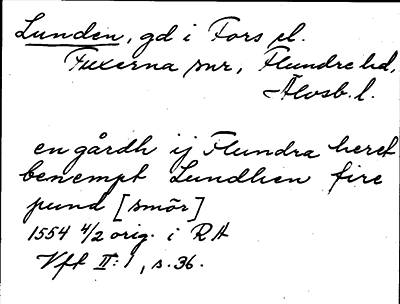 Lunden, gd i Fors el.
Fuxerna snr, Flundre hd,
Älvsb. l.
en gårdh ij Flundra heret
benempt Lundhen fire
pund [smör]
1554 4/2 orig. i RA
Vft II:1, s. 36.